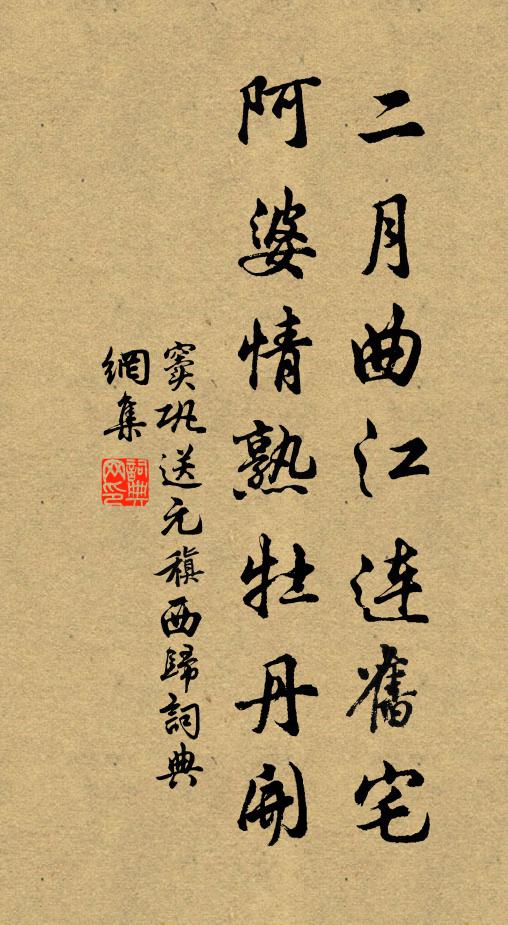 二月曲江連舊宅
阿婆情熟牡丹開
竇鞏送元稹西歸詞典
網集
詞典
网印